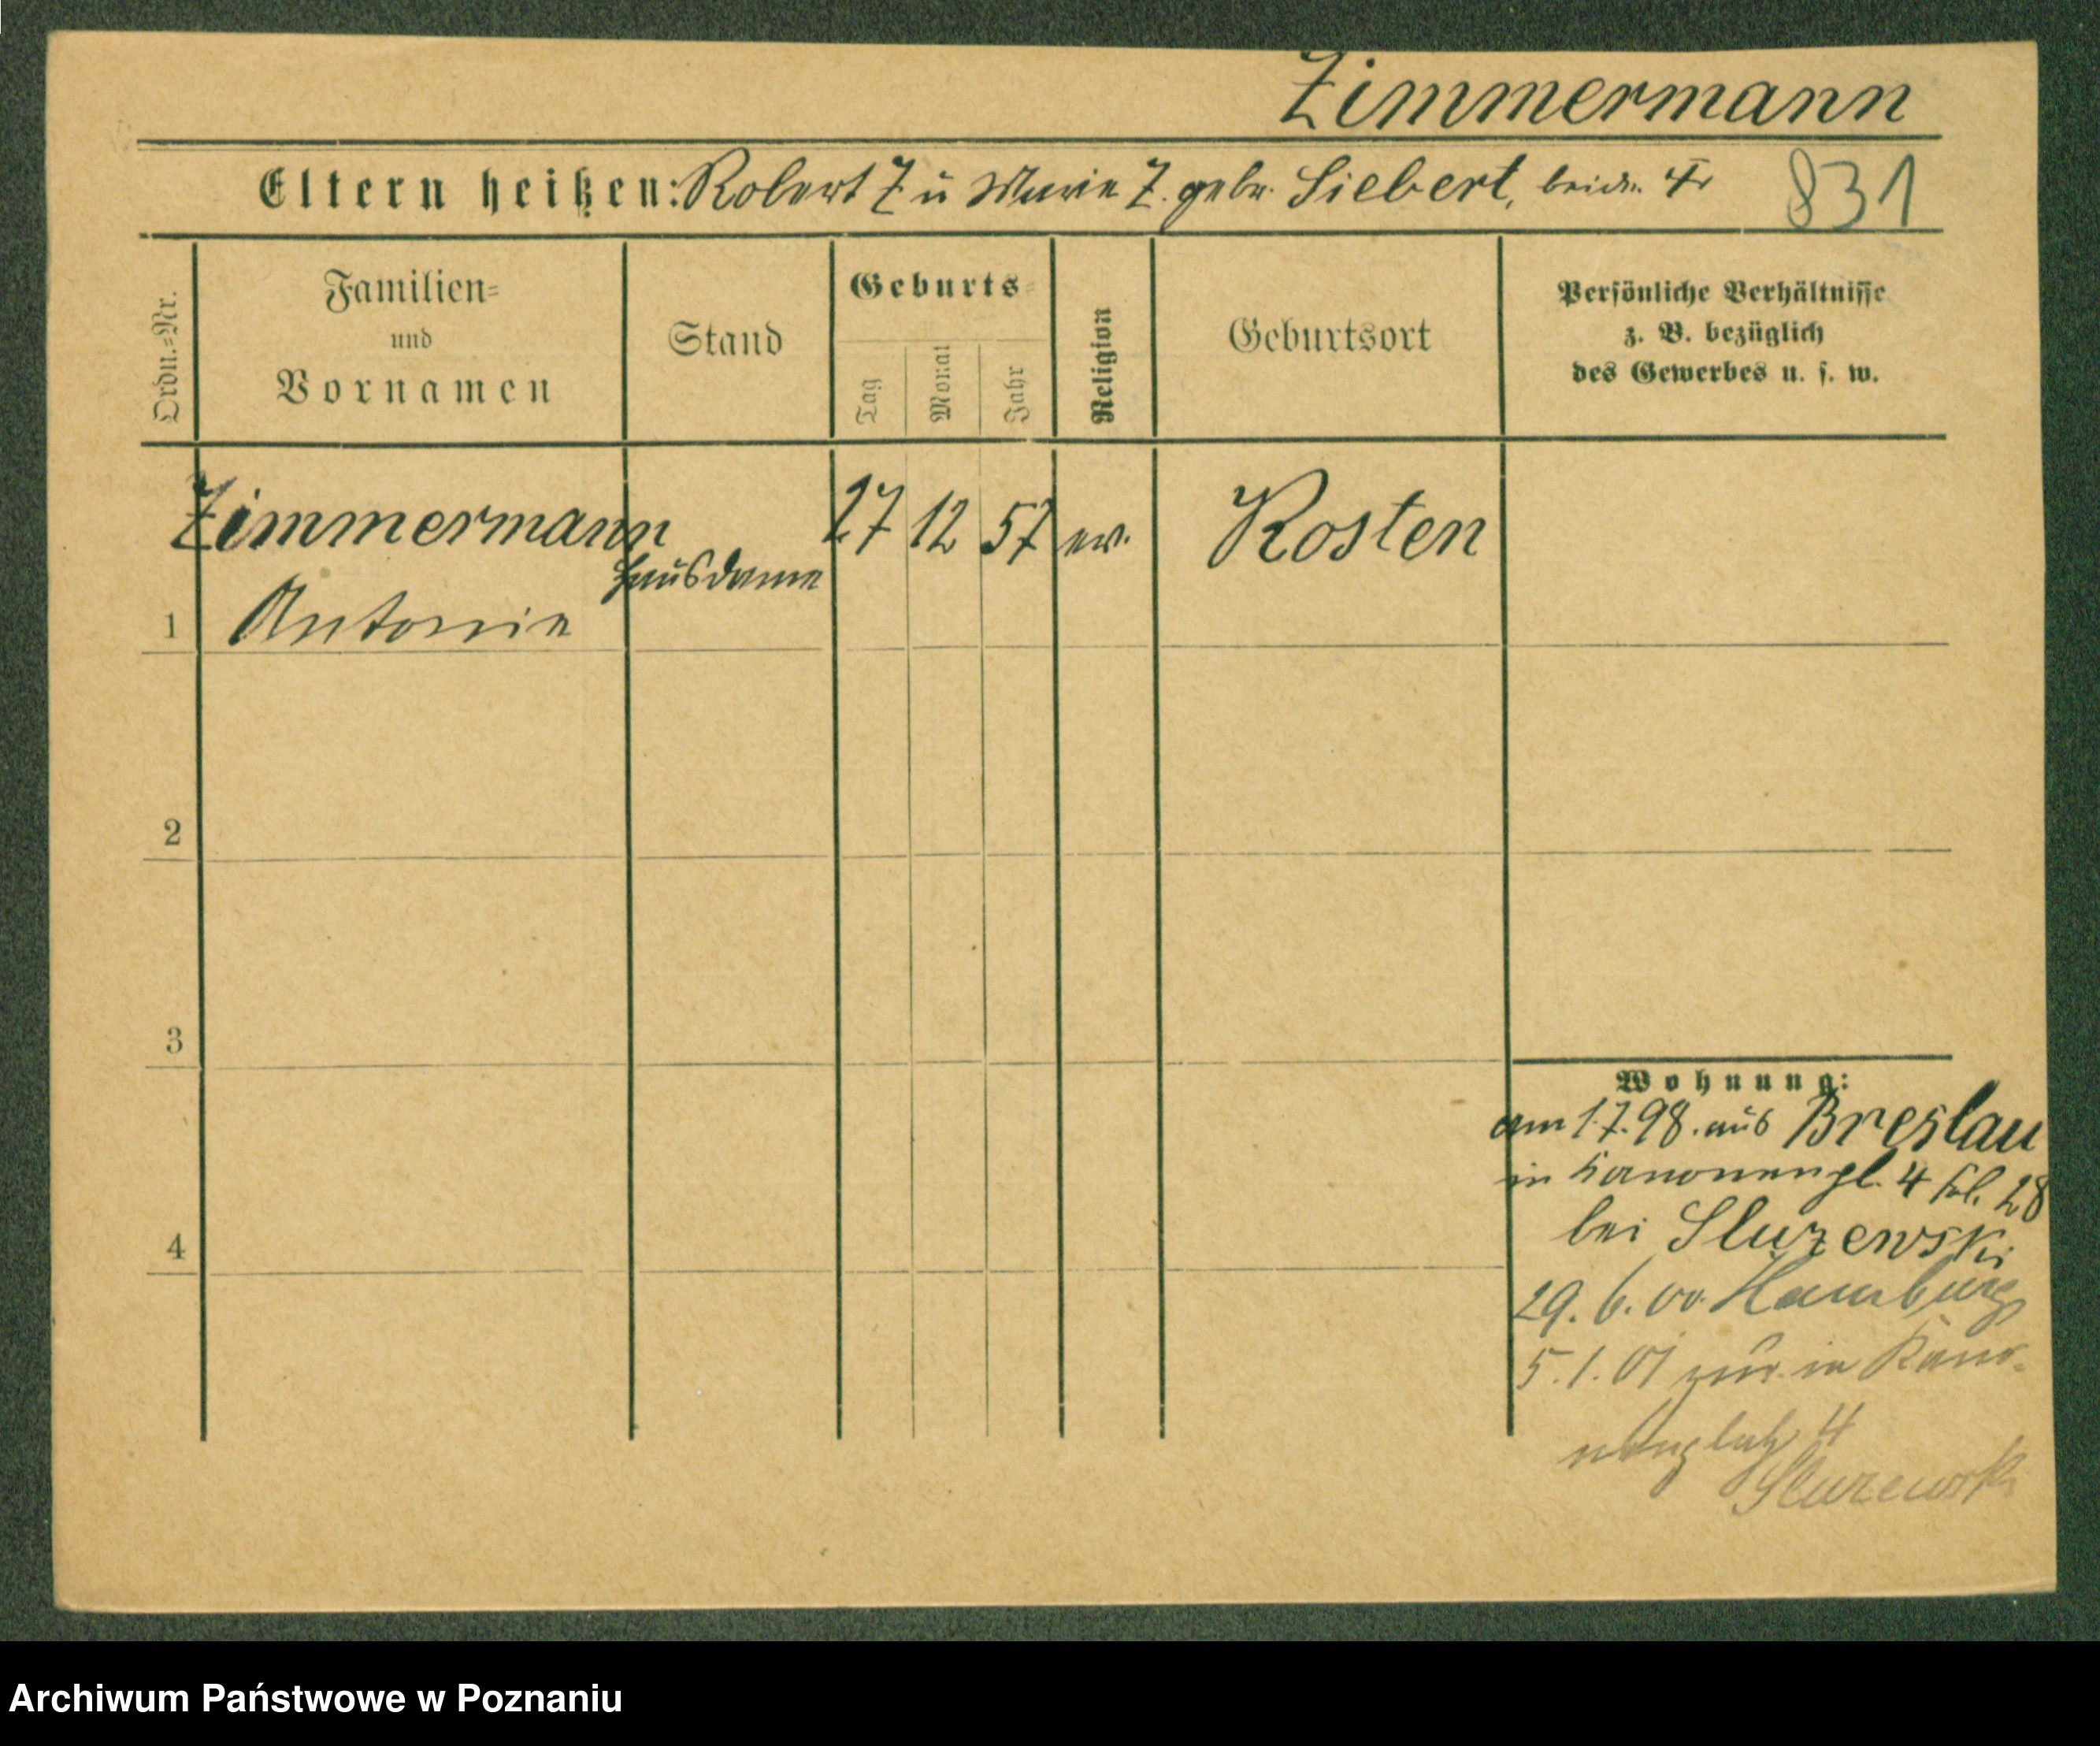 Zimmermann
Eltern heißen: Robert Z u Marie Z. geb. Siebert, beide
831
Ordn.=Nr.
Familien=
und
Vornamen
Stand
Geburts=
Tag
Monat
Jahr
Religion
Geburtsort
Persönliche Verhältnisse
z. B. bezüglich
des Gewerbes u. s. w.
Zimmermann
Hausdame
27 12 57 ev. Kosten
1 Antonie
2
3
4
Wohnung:
am 1.7.98. aus Breslau
in Kanonenpl. 4 28
bei Sluzewski
29. 6. 00. Hamburg
5. 1. 01 zur. in Kano-
nenplatz 4
Sluzewski
Archiwum Państwowe w Poznaniu